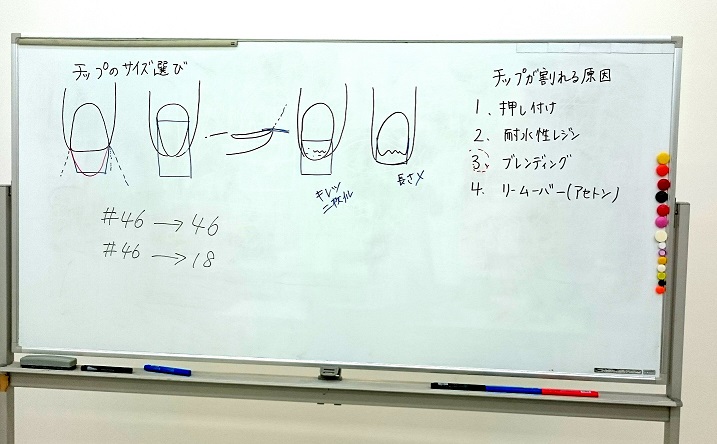 チップのサイズ選び
キレツ
長さ×
#46 → 46
#46 → 18
チップが割れる原因
1、押し付け
2、耐水性レジン
3、ブレンディング
4、リームーバー(アセトン)